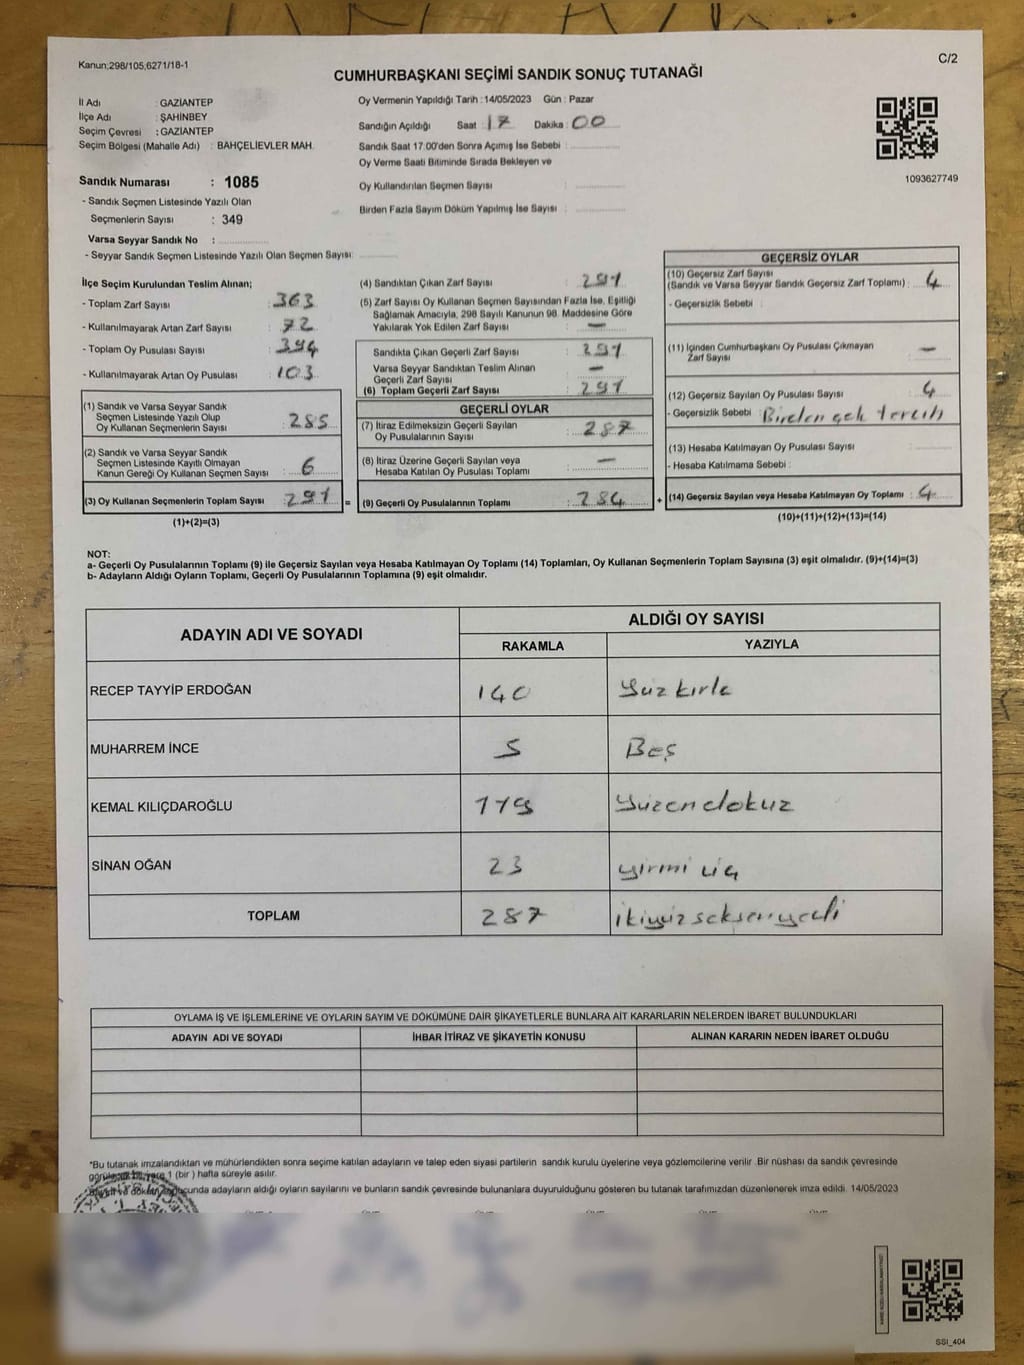 Kanun;298/105,6271/18-1
C/2
CUMHURBAŞKANI SEÇİMİ SANDIK SONUÇ TUTANAĞI
İl Adı : GAZİANTEP
İlçe Adı : ŞAHİNBEY
Seçim Çevresi : GAZİANTEP
Seçim Bölgesi (Mahalle Adı) : BAHÇELİEVLER MAH.
Oy Vermenin Yapıldığı Tarih : 14/05/2023 Gün : Pazar
Sandığın Açıldığı Saat : 17 Dakika : 00
Sandık Saat 17:00'den Sonra Açımış İse Sebebi :
Oy Verme Saati Bitiminde Sırada Bekleyen ve
Oy Kullandırılan Seçmen Sayısı :
Birden Fazla Sayım Döküm Yapılmış İse Sayısı :
1093627749
Sandık Numarası : 1085
- Sandık Seçmen Listesinde Yazılı Olan
Seçmenlerin Sayısı : 349
Varsa Seyyar Sandık No :
- Seyyar Sandık Seçmen Listesinde Yazılı Olan Seçmen Sayısı:
İlçe Seçim Kurulundan Teslim Alınan;
- Toplam Zarf Sayısı : 363
- Kullanılmayarak Artan Zarf Sayısı : 72
- Toplam Oy Pusulası Sayısı : 394
- Kullanılmayarak Artan Oy Pusulası : 103
(1) Sandık ve Varsa Seyyar Sandık
Seçmen Listesinde Yazılı Olup
Oy Kullanan Seçmenlerin Sayısı : 285
(2) Sandık ve Varsa Seyyar Sandık
Seçmen Listesinde Kayıtlı Olmayan
Kanun Gereği Oy Kullanan Seçmen Sayısı : 6
(3) Oy Kullanan Seçmenlerin Toplam Sayısı : 291 =
(1)+(2)=(3)
(4) Sandıktan Çıkan Zarf Sayısı : 291
(5) Zarf Sayısı Oy Kullanan Seçmen Sayısından Fazla İse, Eşitliği
Sağlamak Amacıyla, 298 Sayılı Kanunun 98. Maddesine Göre
Yakılarak Yok Edilen Zarf Sayısı : —
Sandıkta Çıkan Geçerli Zarf Sayısı : 291
Varsa Seyyar Sandıktan Teslim Alınan
Geçerli Zarf Sayısı : —
(6) Toplam Geçerli Zarf Sayısı : 291
GEÇERLİ OYLAR
(7) İtiraz Edilmeksizin Geçerli Sayılan
Oy Pusulalarının Sayısı : 287
(8) İtiraz Üzerine Geçerli Sayılan veya
Hesaba Katılan Oy Pusulası Toplamı : —
(9) Geçerli Oy Pusulalarının Toplamı : 284 +
GEÇERSİZ OYLAR
(10) Geçersiz Zarf Sayısı
(Sandık ve Varsa Seyyar Sandık Geçersiz Zarf Toplamı) : 4
- Geçersizlik Sebebi :
(11) İçinden Cumhurbaşkanı Oy Pusulası Çıkmayan
Zarf Sayısı : —
(12) Geçersiz Sayılan Oy Pusulası Sayısı : 4
- Geçersizlik Sebebi : Birden çok tercih
(13) Hesaba Katılmayan Oy Pusulası Sayısı :
- Hesaba Katılmama Sebebi :
(14) Geçersiz Sayılan veya Hesaba Katılmayan Oy Toplamı : 4
(10)+(11)+(12)+(13)=(14)
NOT:
a- Geçerli Oy Pusulalarının Toplamı (9) ile Geçersiz Sayılan veya Hesaba Katılmayan Oy Toplamı (14) Toplamları, Oy Kullanan Seçmenlerin Toplam Sayısına (3) eşit olmalıdır. (9)+(14)=(3)
b- Adayların Aldığı Oyların Toplamı, Geçerli Oy Pusulalarının Toplamına (9) eşit olmalıdır.
ADAYIN ADI VE SOYADI
ALDIĞI OY SAYISI
RAKAMLA YAZIYLA
RECEP TAYYİP ERDOĞAN 140 Yüz kırk
MUHARREM İNCE 5 Beş
KEMAL KILIÇDAROĞLU 119 Yüzondokuz
SİNAN OĞAN 23 yirmi üç
TOPLAM 287 ikiyüzseksenyedi
OYLAMA İŞ VE İŞLEMLERİNE VE OYLARIN SAYIM VE DÖKÜMÜNE DAİR ŞİKAYETLERLE BUNLARA AİT KARARLARIN NELERDEN İBARET BULUNDUKLARI
ADAYIN ADI VE SOYADI İHBAR İTİRAZ VE ŞİKAYETİN KONUSU ALINAN KARARIN NEDEN İBARET OLDUĞU
*Bu tutanak imzalandıktan ve mühürlendikten sonra seçime katılan adayların ve talep eden siyasi partilerin sandık kurulu üyelerine veya gözlemcilerine verilir .Bir nüshası da sandık çevresinde
1 (bir ) hafta süreyle asılır.
adayların aldığı oyların sayılarını ve bunların sandık çevresinde bulunanlara duyurulduğunu gösteren bu tutanak tarafımızdan düzenlenerek imza edildi. 14/05/2023
SSİ_404